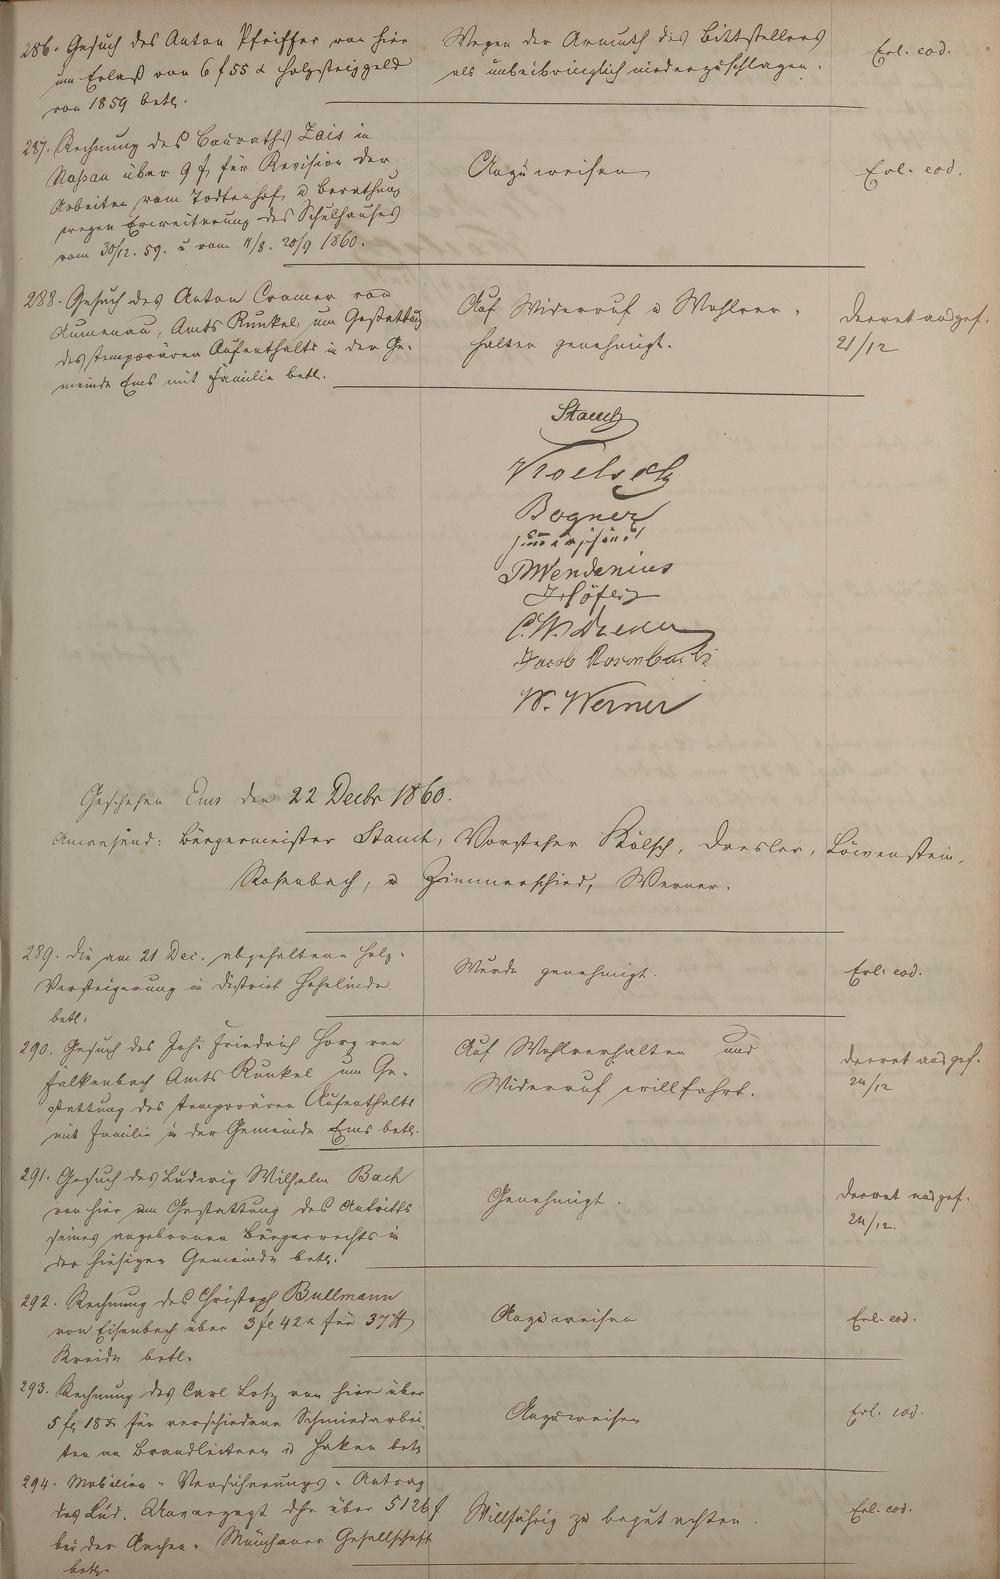 286. Gesuch des Anton Pfeiffer von hier
um Erlaß von 6 f 55 x Holzsteiggeld
von 1859 betr.
Wegen der Armuth des Bittstellers
als unbeibringlich niederzuschlagen.
Erl. eod.
287. Rechnung des Bauraths Zais in
Nassau über 9 f für Revision der
Arbeiten vom Todtenhof u Berathung
wegen Erweiterung des Schulhauses
vom 30/12. 59. u vom 11/8. 20/9 1860.
Anzuweisen
Erl. eod.
288. Gesuch des Anton Cramer von
Aumenau, Amts Runkel, um Gestattung
des temporären Aufenthalts in der Ge-
meinde Ems mit Familie betr.
Auf Widerruf u Wohlver-
halten genehmigt.
Decret ausgef.
21/12
Stauch
Bogner
Wendenius
Jacob Rosenbach
W. Werner
Geschehen Ems den 22 Decbr 1860.
Anwesend: Bürgermeister Stauch, Vorsteher Kölsch, Dresler, Löwenstein,
Rosenbach, u Zimmerschied, Werner.
289. Die am 21 Dec. abgehaltene Holz-
Versteigerung in District Hohelinde
betr.
Wurde genehmigt.
Erl. eod.
290. Gesuch des Joh. Friedrich Horz von
Falkenbach Amts Runkel um Ge-
stattung des temporären Aufenthalts
mit Familie in der Gemeinde Ems betr.
Auf Wohlverhalten und
Widerruf willfahrt.
Decret ausgef.
24/12
291. Gesuch des Ludwig Wilhelm Bach
von hier um Gestattung des Antritts
seines angebornen Bürgerrechts in
der hiesigen Gemeinde betr.
Genehmigt.
Decret ausgef.
24/12.
292. Rechnung des Christoph Bullmann
von Eisenbach über 3 fl 42 x für 37 ℔
Kreide betr.
Anzuweisen
Erl. eod.
293. Rechnung des Carl Lotz von hier über
5 fl 18 x für verschiedene Schmiedarbei-
ten an Brandleitern u Haken betr
Anzuweisen
Erl. eod.
294. Mobilien-Versicherungs-Antrag
des Lud. dhr über 5126 f
bei der Aachen-Münchener Gesellschaft
betr
Willfährig zu begutachten.
Erl. eod.